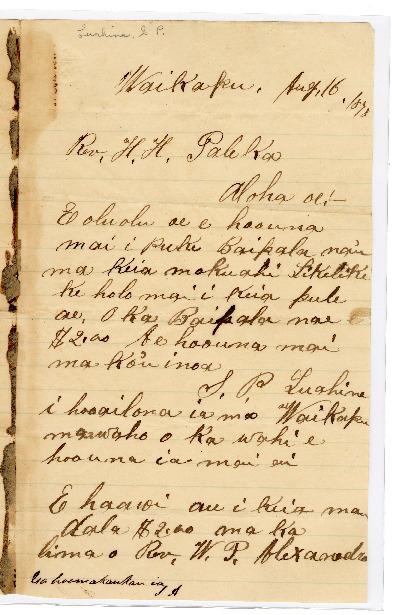 Luahine, S. P.
Waikapu, Aug, 16
Rev, H. H. Paleka
Aloha oe:-
E oluolu oe e hoouna
mai i puke Baipala na'u
ma keia mokuahi Likelike
ke holo mai i keia pule
ae, O ka Baipala nae
$2.00 ke hoouna mai
ma ko'u inoa
S. P. Luahine
i hooailona ia ma Waikapu
mawaho o ka wahi e
hoouna ia mai ai
E haawi au i keia mau
dala $2.00 ma ka
lima o Rev, W. P. Alexanedro
Ua hoomakaukau ia